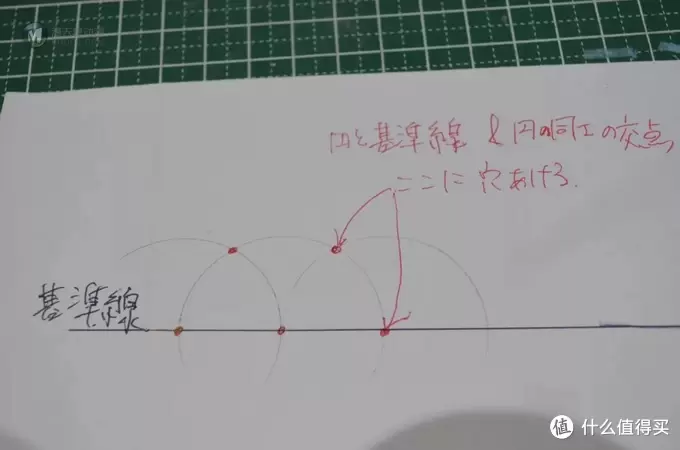 円と基準線 & 円の同士の交点,
ここに穴あける.
基準線
值 什么值得买